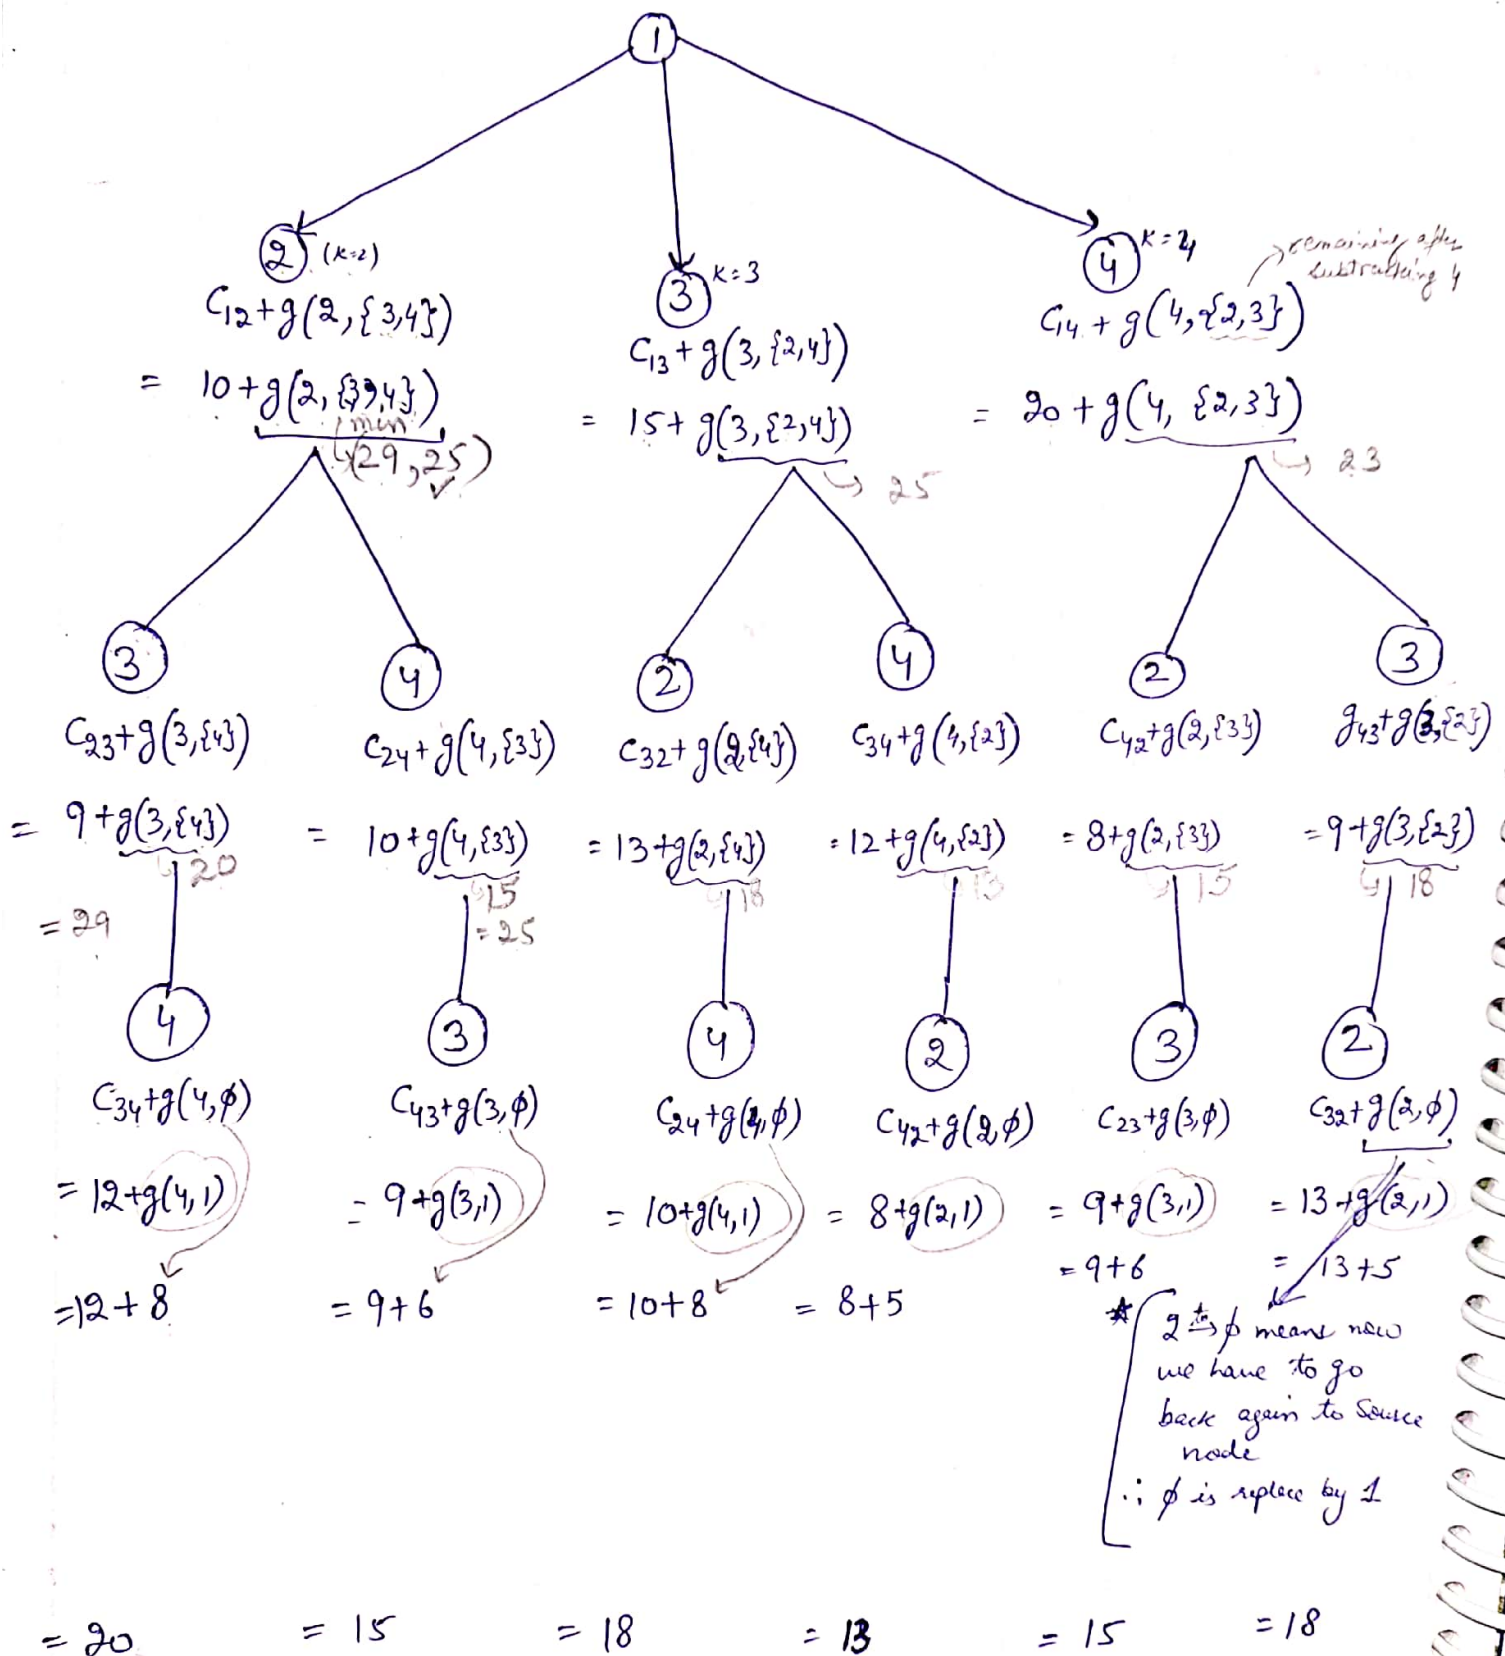 1
2 (K=2)
C12+g(2,{3,4})
= 10+g(2,{3,4})
min
(29,25) ✓
3 K=3
C13+g(3,{2,4})
= 15+g(3,{2,4})
25
4 K=4
remaining after
subtracting 4
C14+g(4,{2,3})
= 20+g(4,{2,3})
23
3
C23+g(3,{4})
= 9+g(3,{4})
20
= 29
4
C24+g(4,{3})
= 10+g(4,{3})
15
= 25
2
C32+g(2,{4})
= 13+g(2,{4})
18
4
C34+g(4,{2})
= 12+g(4,{2})
13
2
C42+g(2,{3})
= 8+g(2,{3})
15
3
g43+g(3,{2})
= 9+g(3,{2})
18
4
C34+g(4,φ)
= 12+g(4,1)
= 12+8
3
C43+g(3,φ)
= 9+g(3,1)
= 9+6
4
C24+g(4,φ)
= 10+g(4,1)
= 10+8
2
C42+g(2,φ)
= 8+g(2,1)
= 8+5
3
C23+g(3,φ)
= 9+g(3,1)
= 9+6
2
C32+g(2,φ)
= 13+g(2,1)
= 13+5
* 2 to→ φ means now
we have to go
back again to Source
node
∴ φ is replace by 1
= 20 = 15 = 18 = 13 = 15 = 18